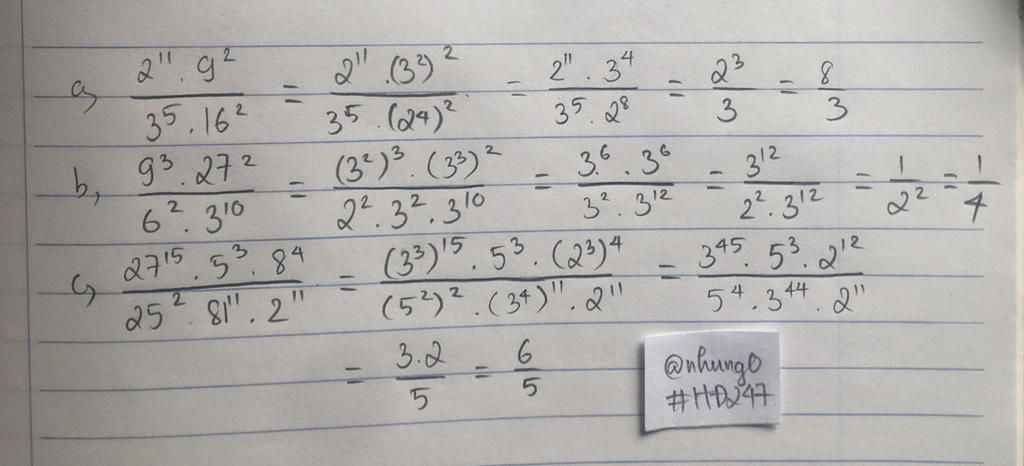 a, 2^11 . 9^2 / 3^5 . 16^2 = 2^11 . (3^2)^2 / 3^5 . (24)^2 = 2^11 . 3^4 / 3^5 . 2^8 = 2^3 / 3 = 8 / 3
b, 9^3 . 27^2 / 6^2 . 3^10 = (3^2)^3 . (3^3)^2 / 2^2 . 3^2 . 3^10 = 3^6 . 3^6 / 3^2 . 3^12 = 3^12 / 2^2 . 3^12 = 1 / 2^2 = 1 / 4
c, 27^15 . 5^3 . 8^4 / 25^2 . 81^11 . 2^11 = (3^3)^15 . 5^3 . (2^3)^4 / (5^2)^2 . (3^4)^11 . 2^11 = 3^45 . 5^3 . 2^12 / 5^4 . 3^44 . 2^11
= 3.2 / 5 = 6 / 5
@nhung0
#HD247